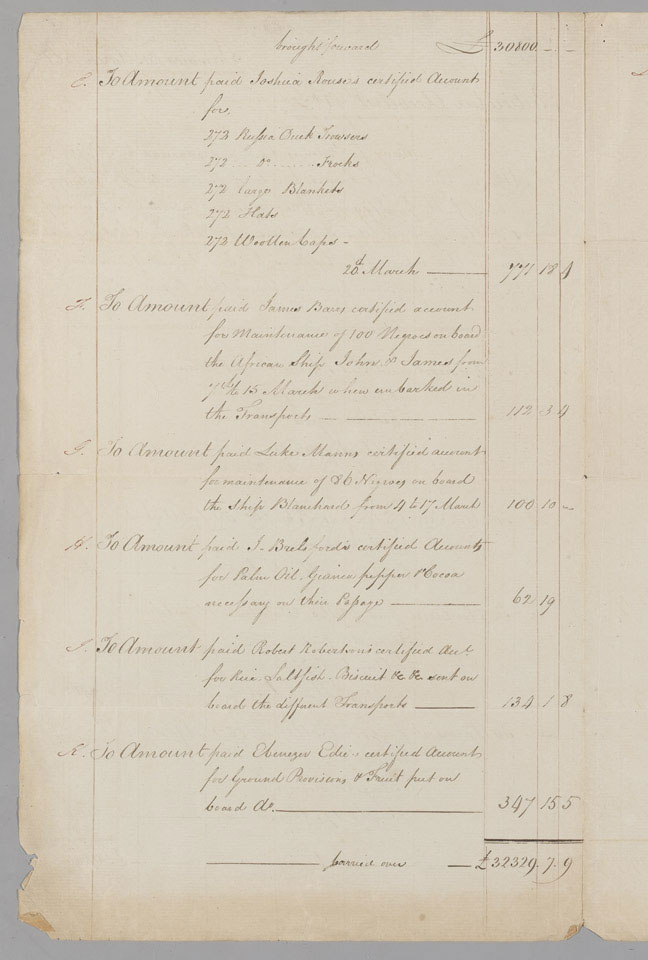 brought forward £ 30800 – –
E. To Amount paid Joshua Rouse's certified Account
for
272 Russia Duck Trowsers
272 .. Do ...... Frocks
272 large Blankets
272 Hats
272 Woollen Caps –
20th March 771 18 4
F. To Amount paid James Bairs certified account
for Maintenance of 100 Negroes on board
the African Ship John & James from
7th to 15 March when embarked in
the Transports 112 3 4
G. To Amount paid Luke Manns certified account
for maintenance of 86 Negroes on board
the Ship Blanchard from 4 to 17 March 100 10 –
H. To Amount paid J. Brelsfords certified Accounts
for Palm Oil. Guinea pepper & Cocoa
necessary on their Passage 62 19
I. To Amount paid Robert Robertson's certified Acct
for Rice. Saltfish. Biscuit &c &c sent on
board the different Transports 134 1 8
K. To Amount paid Ebenezer Edie's certified Account
for Ground Provisions & Fruit put on
board Do. 347 15 5
carried over £ 32329. 7. 9